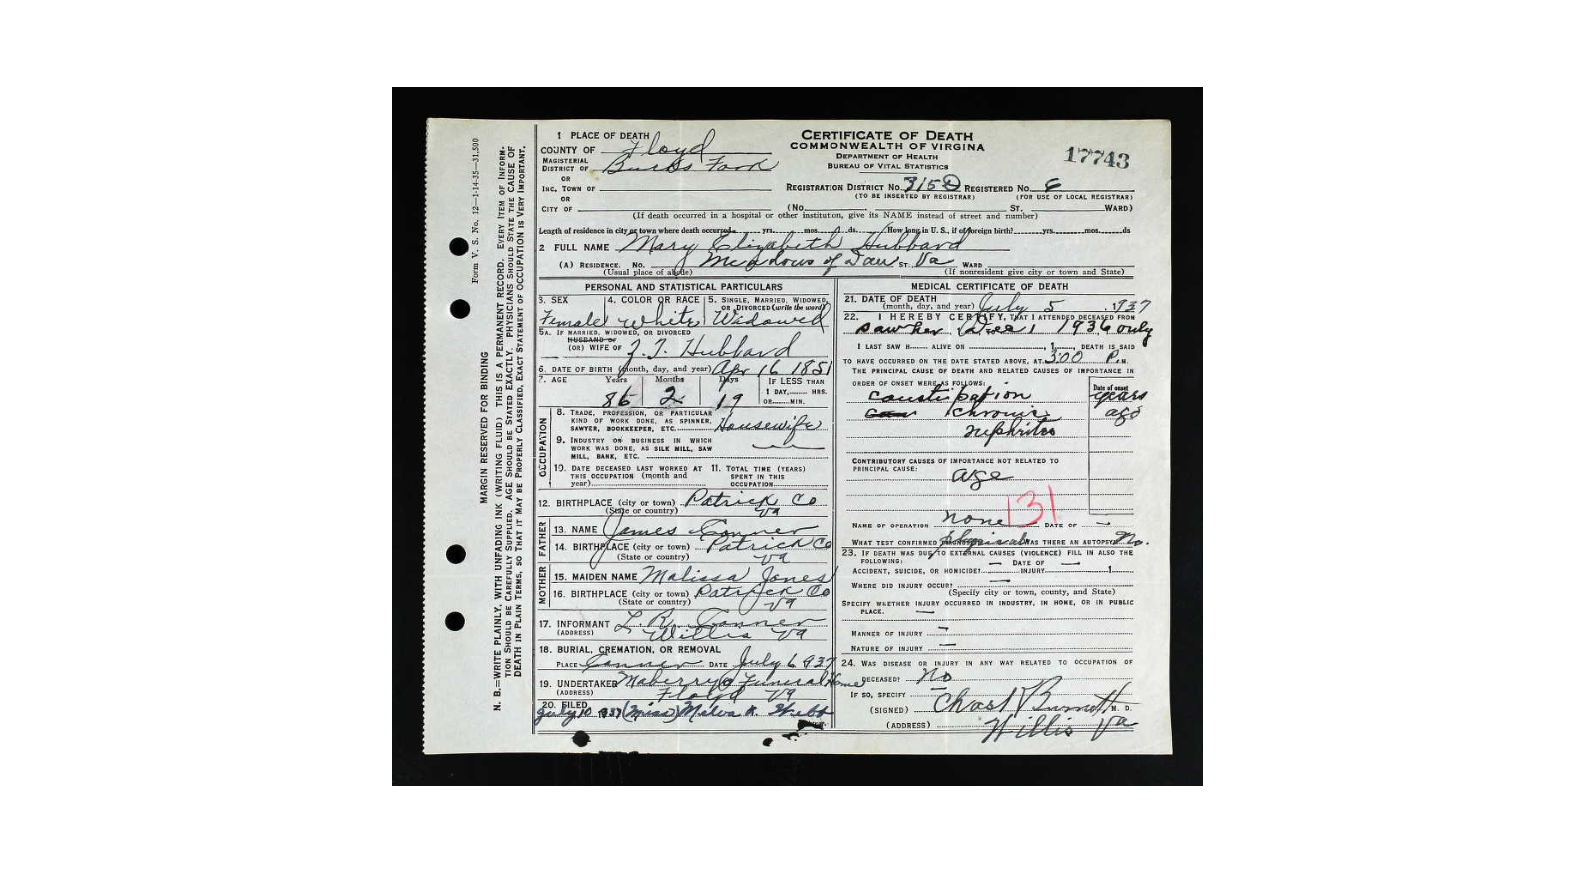 Form V. S. No. 12—1-14-35—31,500
MARGIN RESERVED FOR BINDING
N. B.—WRITE PLAINLY, WITH UNFADING INK (WRITING FLUID) THIS IS A PERMANENT RECORD. EVERY ITEM OF INFORM-
TION SHOULD BE CAREFULLY SUPPLIED. AGE SHOULD BE STATED EXACTLY. PHYSICIANS SHOULD STATE THE CAUSE OF
DEATH IN PLAIN TERMS, SO THAT IT MAY BE PROPERLY CLASSIFIED. EXACT STATEMENT OF OCCUPATION IS VERY IMPORTANT.
CERTIFICATE OF DEATH
COMMONWEALTH OF VIRGINA
DEPARTMENT OF HEALTH
BUREAU OF VITAL STATISTICS
17743
1 PLACE OF DEATH
COUNTY OF Floyd
MAGISTERIAL DISTRICT OF Burks Fork
OR
INC. TOWN OF
OR
CITY OF
REGISTRATION DISTRICT NO. 315D REGISTERED NO. 6
(TO BE INSERTED BY REGISTRAR) (FOR USE OF LOCAL REGISTRAR)
(No. ST. WARD)
(If death occurred in a hospital or other instituton, give its NAME instead of street and number)
Length of residence in city or town where death occurred yrs. mos. ds. (How long in U. S., if of foreign birth? yrs. mos. ds
2 FULL NAME Mary Elizabeth Hubbard
(A) RESIDENCE. No. Meadows of Dan ST. Va WARD
(Usual place of abode) (If nonresident give city or town and State)
PERSONAL AND STATISTICAL PARTICULARS
3. SEX 4. COLOR OR RACE 5. SINGLE, MARRIED, WIDOWED, OR DIVORCED (write the word)
Female White Widowed
5A. IF MARRIED, WIDOWED, OR DIVORCED
HUSBAND OF
(OR) WIFE OF Z. T. Hubbard
6. DATE OF BIRTH (month, day, and year) Apr 16 1851
7. AGE Years Months Days IF LESS THAN
1 DAY, HRS.
OR MIN.
86 2 19
OCCUPATION
8. TRADE, PROFESSION, OR PARTICULAR
KIND OF WORK DONE, AS SPINNER,
SAWYER, BOOKKEEPER, ETC. Housewife
9. INDUSTRY OR BUSINESS IN WHICH
WORK WAS DONE, AS SILK MILL, SAW
MILL, BANK, ETC.
10. DATE DECEASED LAST WORKED AT THIS OCCUPATION (month and year)
11. TOTAL TIME (YEARS) SPENT IN THIS OCCUPATION
12. BIRTHPLACE (city or town) Patrick Co
(State or country) Va
FATHER
13. NAME James Conner
14. BIRTHPLACE (city or town) Patrick Co
(State or country) Va
MOTHER
15. MAIDEN NAME Malissa Jones
16. BIRTHPLACE (city or town) Patrick Co
(State or country) Va
17. INFORMANT L. R. Conner
(ADDRESS) Willis Va
18. BURIAL, CREMATION, OR REMOVAL
PLACE Conner DATE July 6 1937
19. UNDERTAKER Maberry Funeral Home
(ADDRESS) Floyd Va
20. FILED July 10 1937 (Miss) Malva K. Webb
MEDICAL CERTIFICATE OF DEATH
21. DATE OF DEATH
(month, day, and year) July 5 1937
22. I HEREBY CERTIFY, THAT I ATTENDED DECEASED FROM
saw her Dec 1 1936 only
I LAST SAW H ALIVE ON , 1 , DEATH IS SAID
TO HAVE OCCURRED ON THE DATE STATED ABOVE, AT 3:00 P.M.
THE PRINCIPAL CAUSE OF DEATH AND RELATED CAUSES OF IMPORTANCE IN
ORDER OF ONSET WERE AS FOLLOWS: Date of onset
constipation years
chronic ago
nephritis
CONTRIBUTORY CAUSES OF IMPORTANCE NOT RELATED TO
PRINCIPAL CAUSE:
age
131
NAME OF OPERATION none DATE OF —
WHAT TEST CONFIRMED DIAGNOSIS? physical WAS THERE AN AUTOPSY? No.
23. IF DEATH WAS DUE TO EXTERNAL CAUSES (VIOLENCE) FILL IN ALSO THE
FOLLOWING: — DATE OF —
ACCIDENT, SUICIDE, OR HOMICIDE? INJURY 1
WHERE DID INJURY OCCUR? —
(Specify city or town, county, and State)
SPECIFY WHETHER INJURY OCCURRED IN INDUSTRY, IN HOME, OR IN PUBLIC
PLACE. —
MANNER OF INJURY —
NATURE OF INJURY —
24. WAS DISEASE OR INJURY IN ANY WAY RELATED TO OCCUPATION OF
DECEASED? No
IF SO, SPECIFY —
(SIGNED) Chas R Burnett M. D.
(ADDRESS) Willis Va